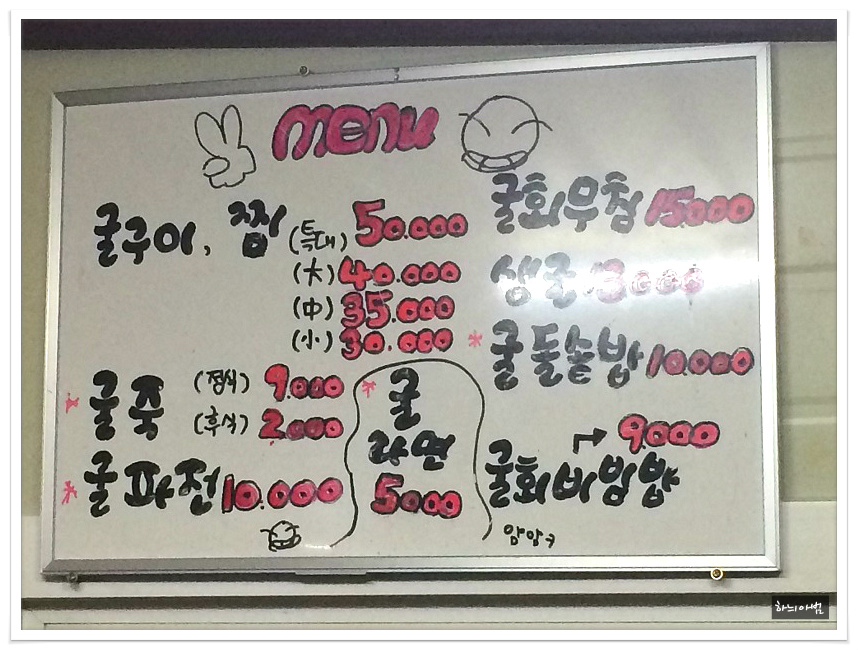 menu
굴구이, 찜 (특대) 50.000
(大) 40.000
(中) 35.000
(小) 30.000
* 굴죽 (정식) 9.000
(후식) 2.000
* 굴파전 10.000
* 굴
라면
5000
굴회무침 15.000
생굴 13.000
* 굴돌솥밥 10.000
→ 9.000
굴회비빔밥
얌얌ㅋ
하늬아범